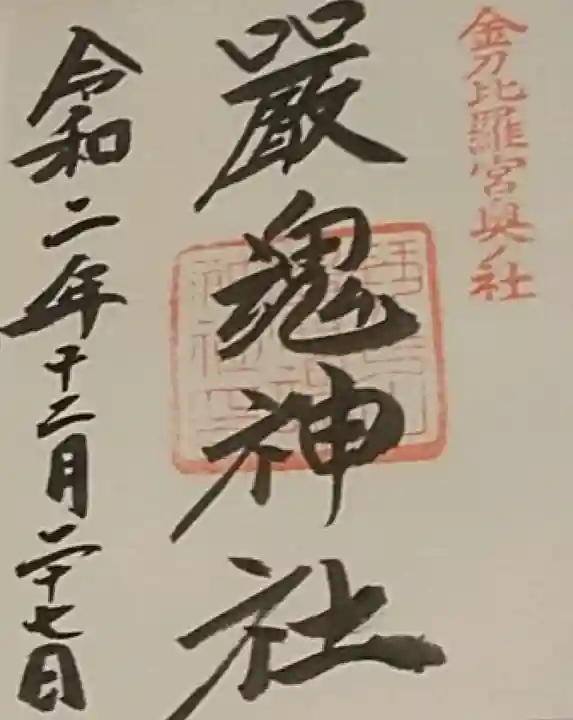 金刀比羅宮奥ノ社
嚴魂神社
令和二年十二月二十七日